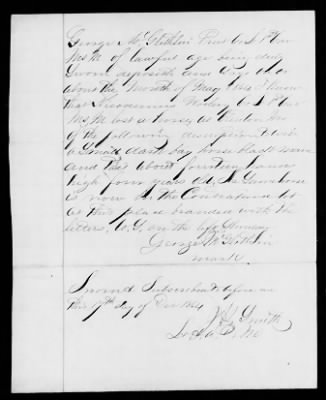 George McGlothlin Priv Co L 1st Cav
Mo M of lawful age being duly
Sworn deposeth and says that
about the Month of May 1864 I Know
that Co L 1st Cav
Mo M lost a horse at
of the following description to wit
a Small dark bay horse black mane
and Tail about fourteen hands
high four years old, the Same horse
is now in the Corral
at this place branded with the
letters U.S. on the left Shoulder
George McGlothlin
mark
Sworn & Subscribed before me
this 17th day of Dec 1864
Smith